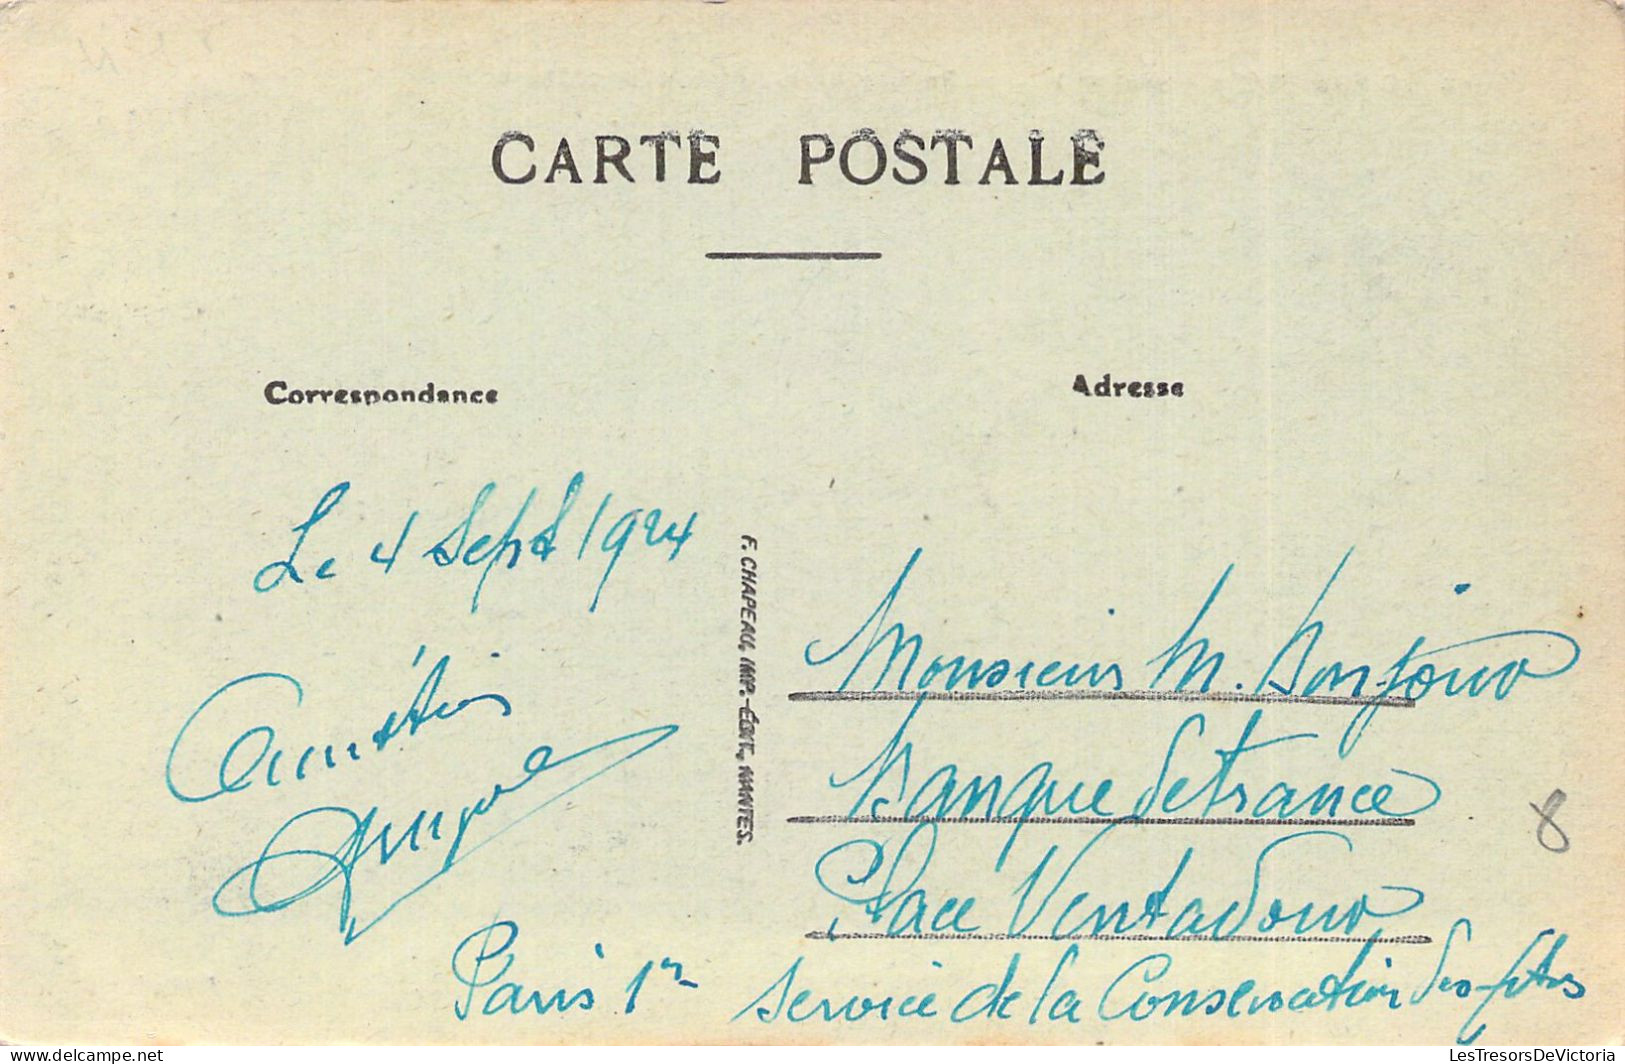 CARTE POSTALE
Correspondance
Adresse
Le 4 Sept 1924
Amitiés
F. CHAPEAU, IMP.-ÉDIT., NANTES.
Monsieur M. Bonjour
Banque de France
Place Ventadour
Paris 1er
Service de la Conservation des
8
delcampe.net
LesTresorsDeVictoria